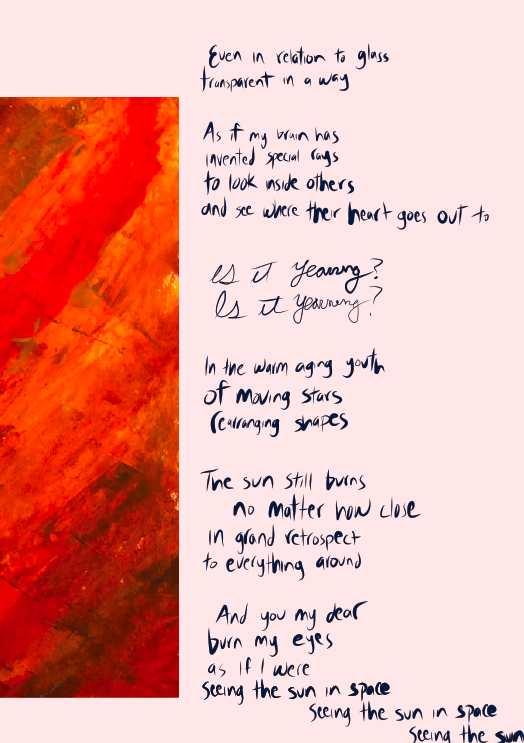 Even in relation to glass
transparent in a way
As if my brain has
invented special rays
to look inside others
and see where their heart goes out to
Is it yearning?
Is it yearning?
In the warm aging youth
of moving stars
rearranging shapes
The sun still burns
no matter how close
in grand retrospect
to everything around
And you my dear
burn my eyes
as if I were
seeing the sun in space
seeing the sun in space
seeing the sun